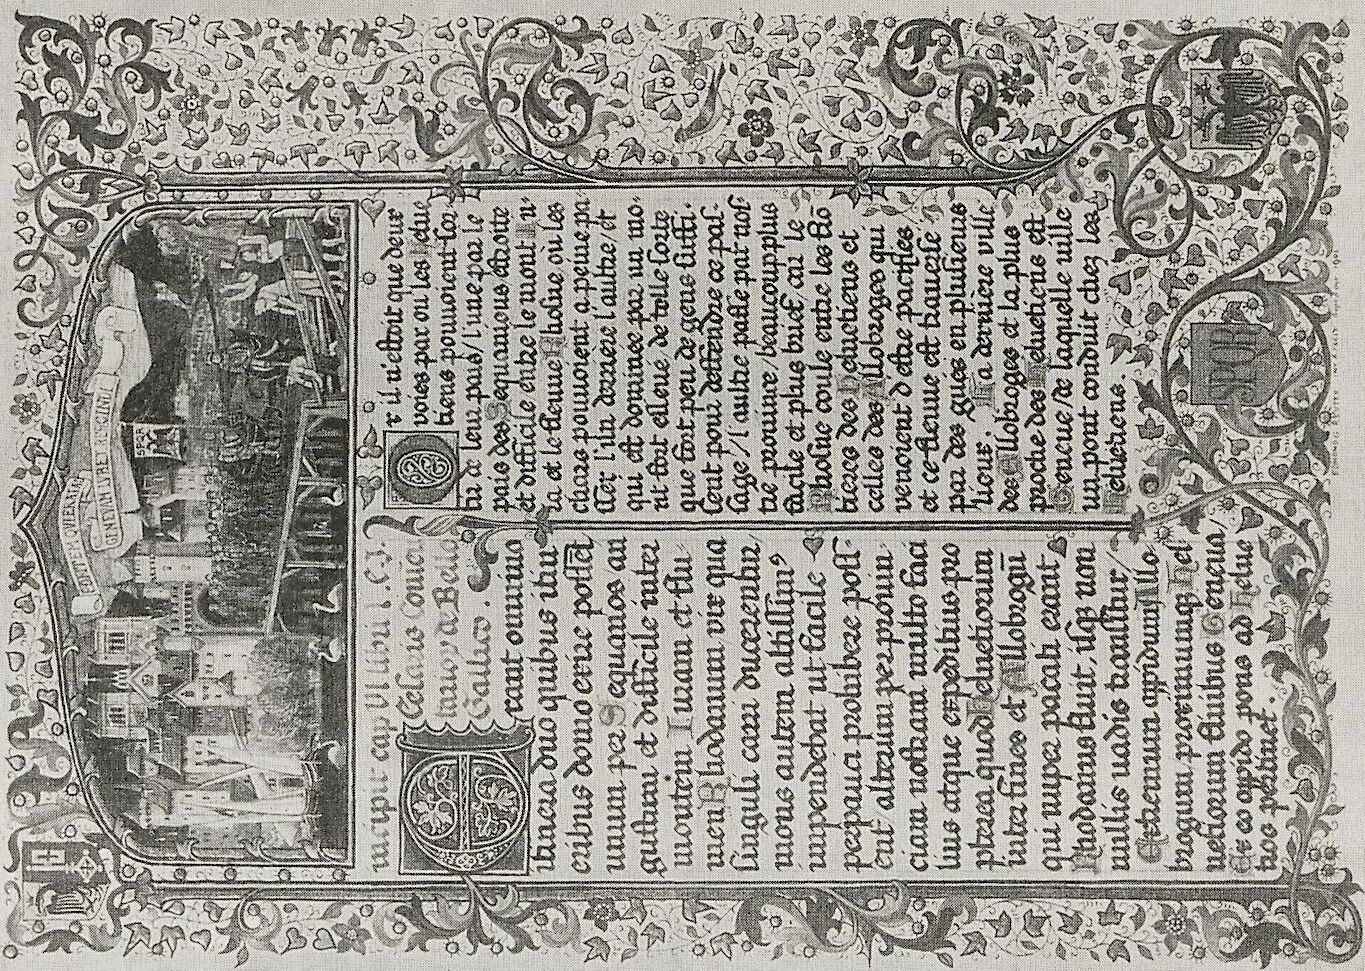 GENEVAM
SPQR
incipit cap VI libri I. C. J.
Cesaris Comen
tariorum de Bello
Gallico.
Erant omnino
itinera duo quibus itin
eribus domo exire possēt
unum per Sequanos an
gustum et difficile inter
montem Iuram et flu
men Rhodanum vix qua
singuli carri ducerentur
mons autem altissim⁹
impendebat ut facile
perpauci prohibere poss
ent / alterum per provin
ciam nostram multo faci
lius atque expeditius pro
pterea quod Helvetiorum
inter fines et Allobrogū
qui nuper pacati erant
Rhodanus fluit, isqz non
nullis vadis transitur /
Extremum oppidum Allo
brogum proximumqz Hel
vetiorum finibus Geneva /
Ex eo oppido pons ad Helve
tios pertinet.
Or il n'estoit que deux
voies par ou les Helve
tiens pouvoient sor
tir de leur païs / l'une par le
païs des Sequaniens estroite
et difficile entre le mont Iu
ra et le fleuve Rhosne où les
chars pouvoient a peine pa
sser l'un derriere l'autre / et
qui est dominee par un mo
nt fort eslevé de telle sorte
que fort peu de gens suffi
sent pour deffendre ce pas
sage / l'aultre passe par nos
tre province / beaucoup plus
facile et plus brief car le
Rhosne coule entre les fro
tieres des Helvetiens et
celles des Allobroges qui
venoient d'estre pacifiés
et ce fleuve est traversé
par des gués en plusieurs
lieux. La derniere ville
des Allobroges et la plus
proche des Helvetiens est
Geneve / de laquelle ville
un pont conduit chez les
Helvetiens.